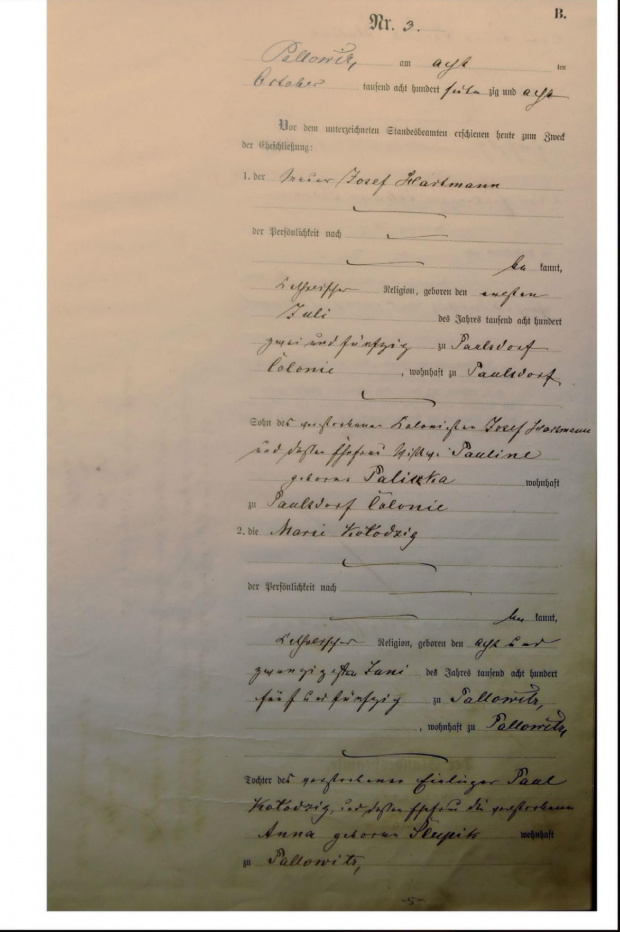 B.
Nr. 3.
Pallowitz, am acht ten
October tausend acht hundert sieben zig und acht
Vor dem unterzeichneten Standesbeamten erschienen heute zum Zweck
der Eheschließung:
1. der Josef Hartmann
der Persönlichkeit nach
be kannt,
katholischer Religion, geboren den ersten
Juli des Jahres tausend acht hundert
zwei und fünfzig zu Paulsdorf
Colonie, wohnhaft zu Paulsdorf
Sohn des verstorbenen Kolonisten Josef Hartmann
und dessen Ehefrau Pauline
geborne Paliczka wohnhaft
zu Paulsdorf Colonie
2. die Marie Kołodzig
der Persönlichkeit nach
be kannt,
katholischer Religion, geboren den acht und
zwanzigsten Juni des Jahres tausend acht hundert
fünf und fünfzig zu Pallowitz,
, wohnhaft zu Pallowitz,
Tochter des verstorbenen Einlieger Paul
Kołodzig, und dessen Ehefrau die verstorbene
Anna geborne Słupik wohnhaft
zu Pallowitz,
-5-